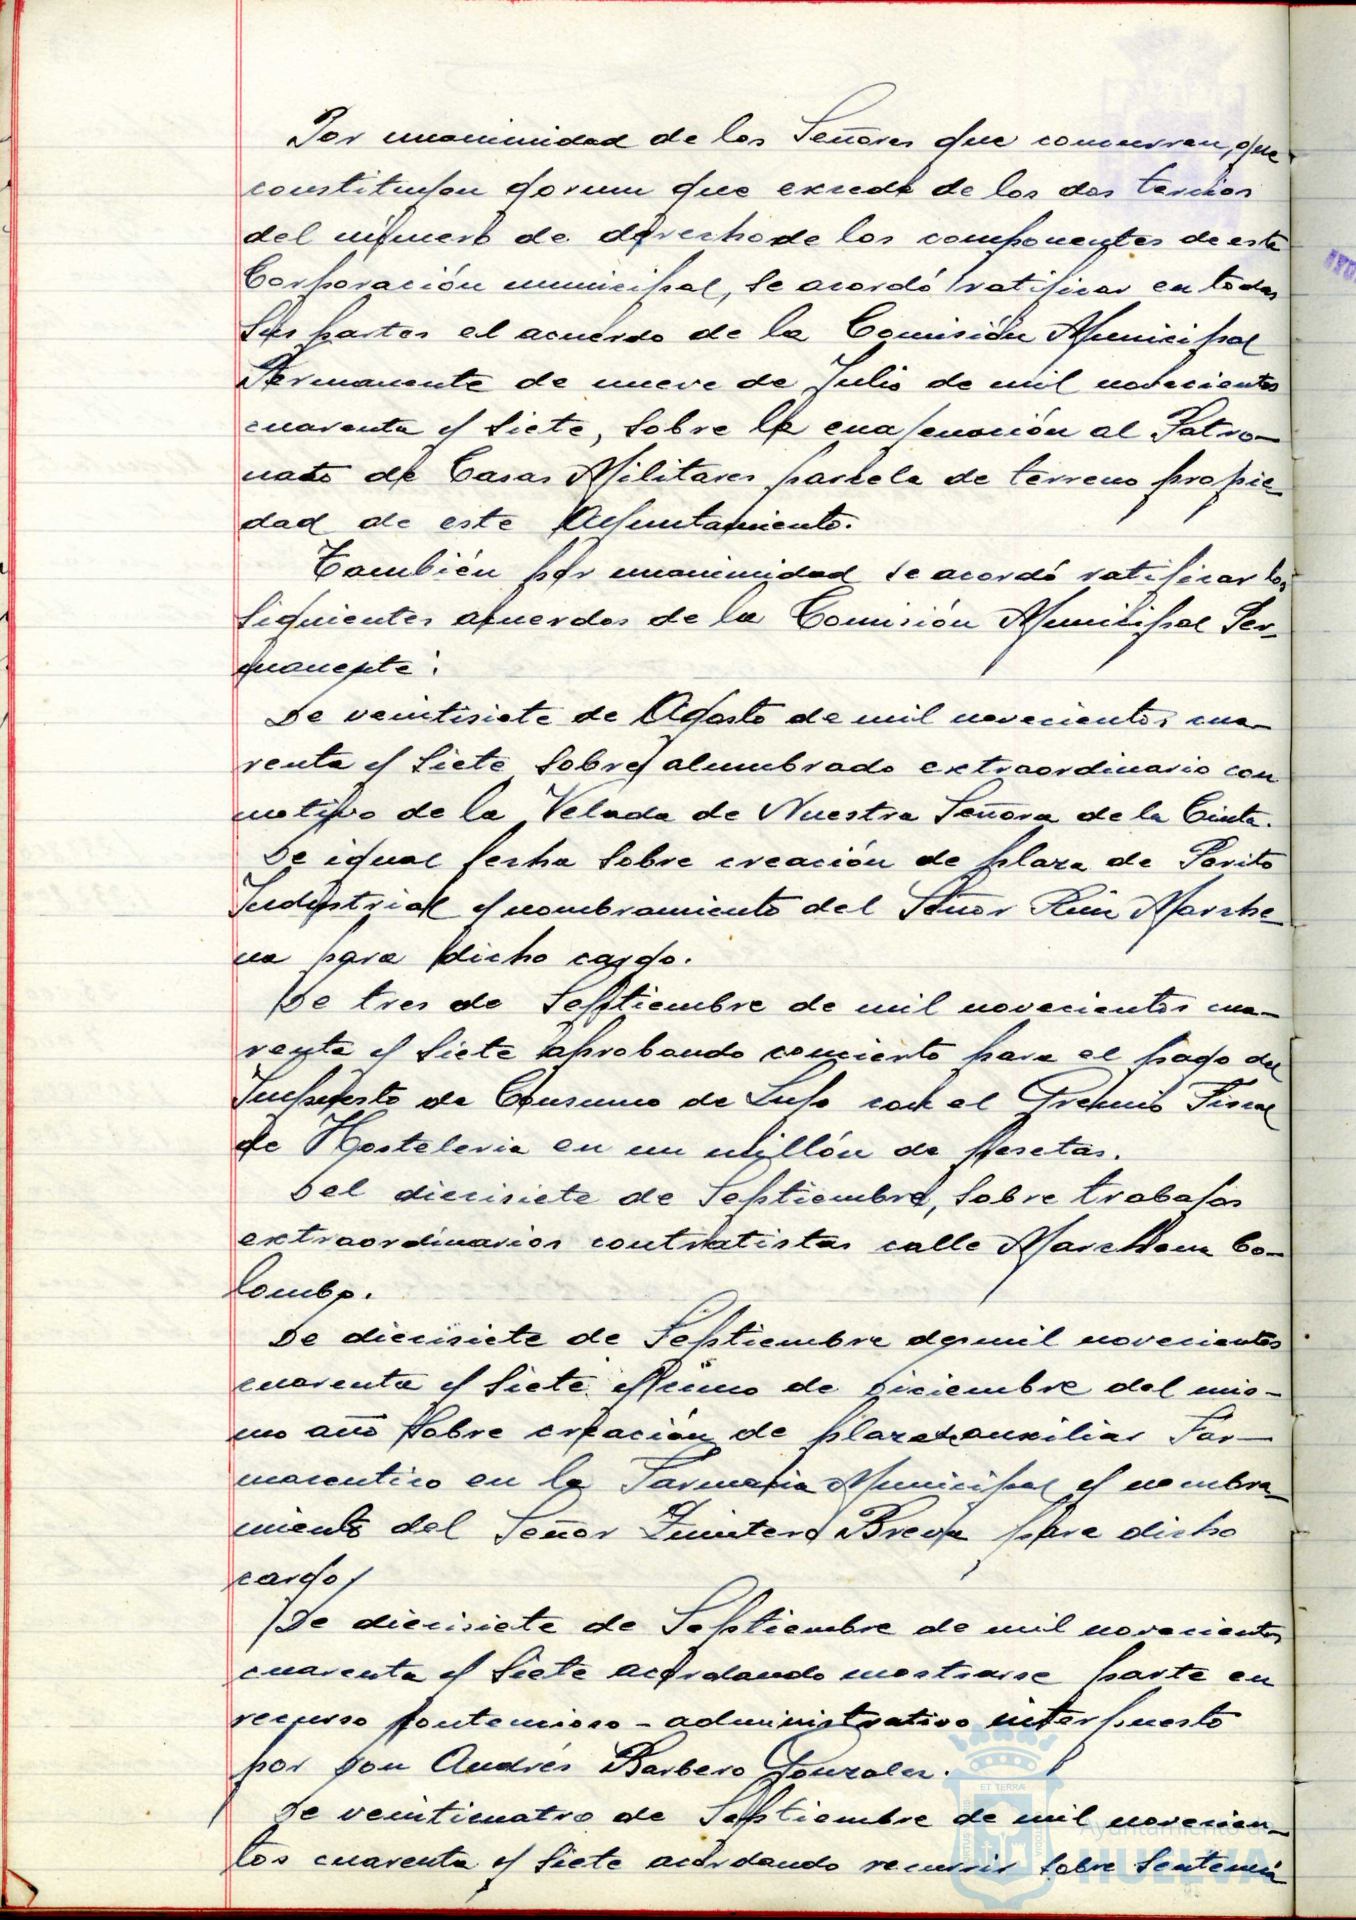 Por unanimidad de los Señores que concurren, que
constituyen qorum que excede de los dos tercios
del número de derecho de los componentes de esta
Corporación municipal, se acordó ratificar en todas
sus partes el acuerdo de la Comisión Municipal
Permanente de nueve de Julio de mil novecientos
cuarenta y siete, sobre la enajenación al Patro-
nato de Casas Militares parcela de terreno propie-
dad de este Ayuntamiento.
También por unanimidad se acordó ratificar los
siguientes acuerdos de la Comisión Municipal Per-
manente:
De veintisiete de Agosto de mil novecientos cua-
renta y siete sobre alumbrado extraordinario con
motivo de la Velada de Nuestra Señora de la Cinta.
De igual fecha sobre creación de plaza de Perito
Industrial y nombramiento del Señor Ruiz Marche-
na para dicho cargo.
De tres de Septiembre de mil novecientos cua-
renta y siete aprobando concierto para el pago del
Impuesto de Consumo de Lujo con el Gremio Fiscal
de Hosteleria en un millón de pesetas.
Del diecisiete de Septiembre, sobre trabajos
extraordinarios contratistas calle Marchena Co-
lombo.
De diecisiete de Septiembre de mil novecientos
cuarenta y siete y de Diciembre del mis-
mo año sobre creación de plaza de auxiliar Far-
maceutico en la Farmacia Municipal y nombra-
miento del Señor Quintero Breva para dicho
cargo.
De diecisiete de Septiembre de mil novecientos
cuarenta y siete acordando mostrarse parte en
recurso contencioso-administrativo interpuesto
por Don Andrés Barbero Gonzalez.
De veinticuatro de Septiembre de mil novecien-
tos cuarenta y siete acordando recurrir sobre sentencia
ET TERRAE
Ayuntamiento de
HUELVA